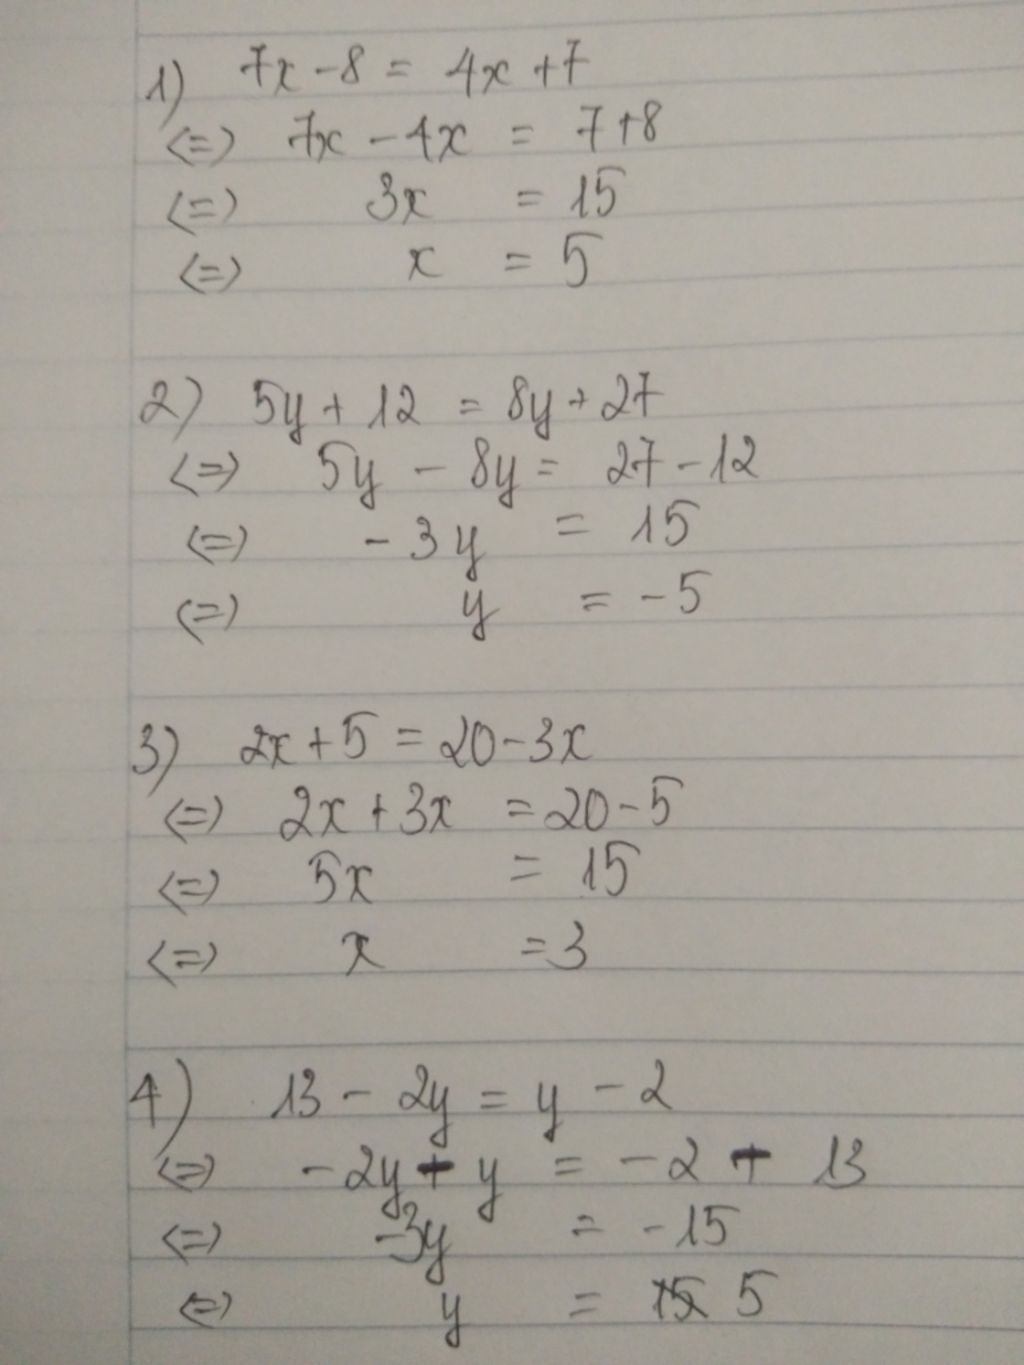 1) 7x - 8 = 4x + 7
<=> 7x - 4x = 7+8
<=> 3x = 15
<=> x = 5
2) 5y + 12 = 8y + 27
<=> 5y - 8y = 27 - 12
<=> -3y = 15
<=> y = -5
3) 2x + 5 = 20 - 3x
<=> 2x + 3x = 20 - 5
<=> 5x = 15
<=> x = 3
4) 13 - 2y = y - 2
<=> -2y - y = -2 - 13
<=> -3y = -15
<=> y = 5